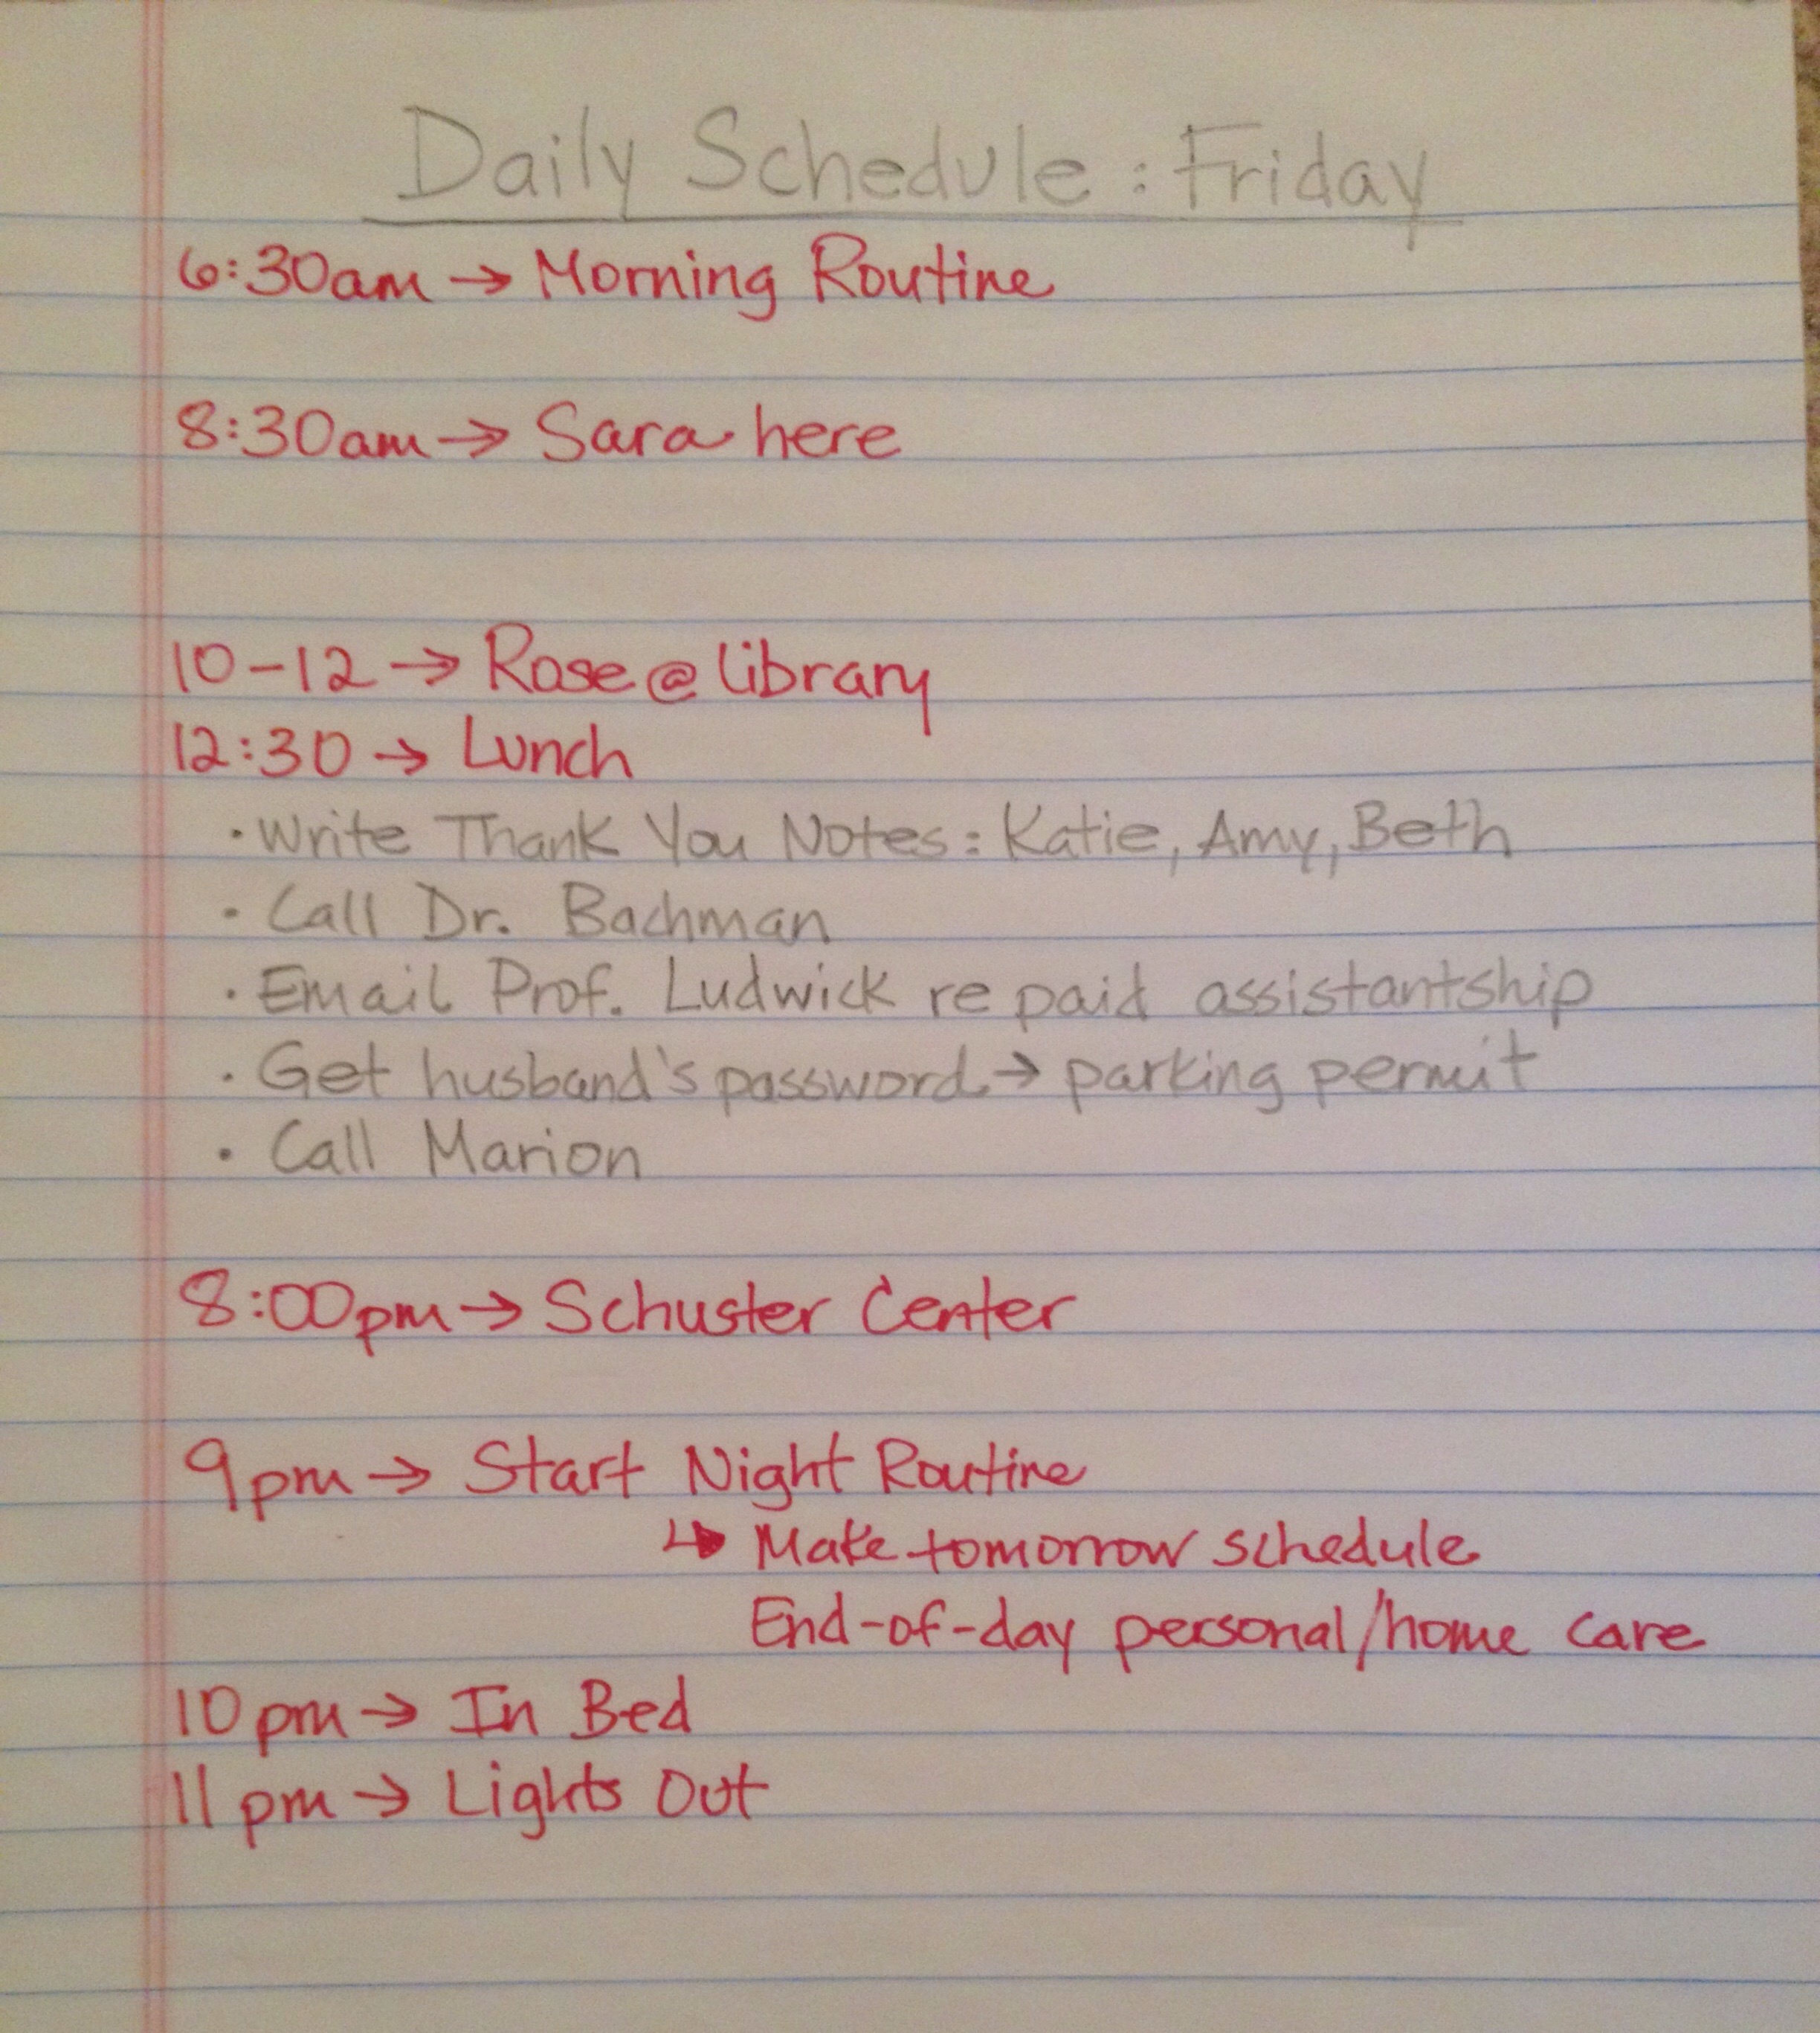 Daily Schedule: Friday
6:30am → Morning Routine
8:30am → Sara here
10-12 → Rose @ library
12:30 → Lunch
• Write Thank You Notes: Katie, Amy, Beth
• Call Dr. Bachman
• Email Prof. Ludwick re paid assistantship
• Get husband's password → parking permit
• Call Marion
8:00pm → Schuster Center
9pm → Start Night Routine
↳ Make tomorrow schedule
End-of-day personal/home care
10pm → In Bed
11pm → Lights Out